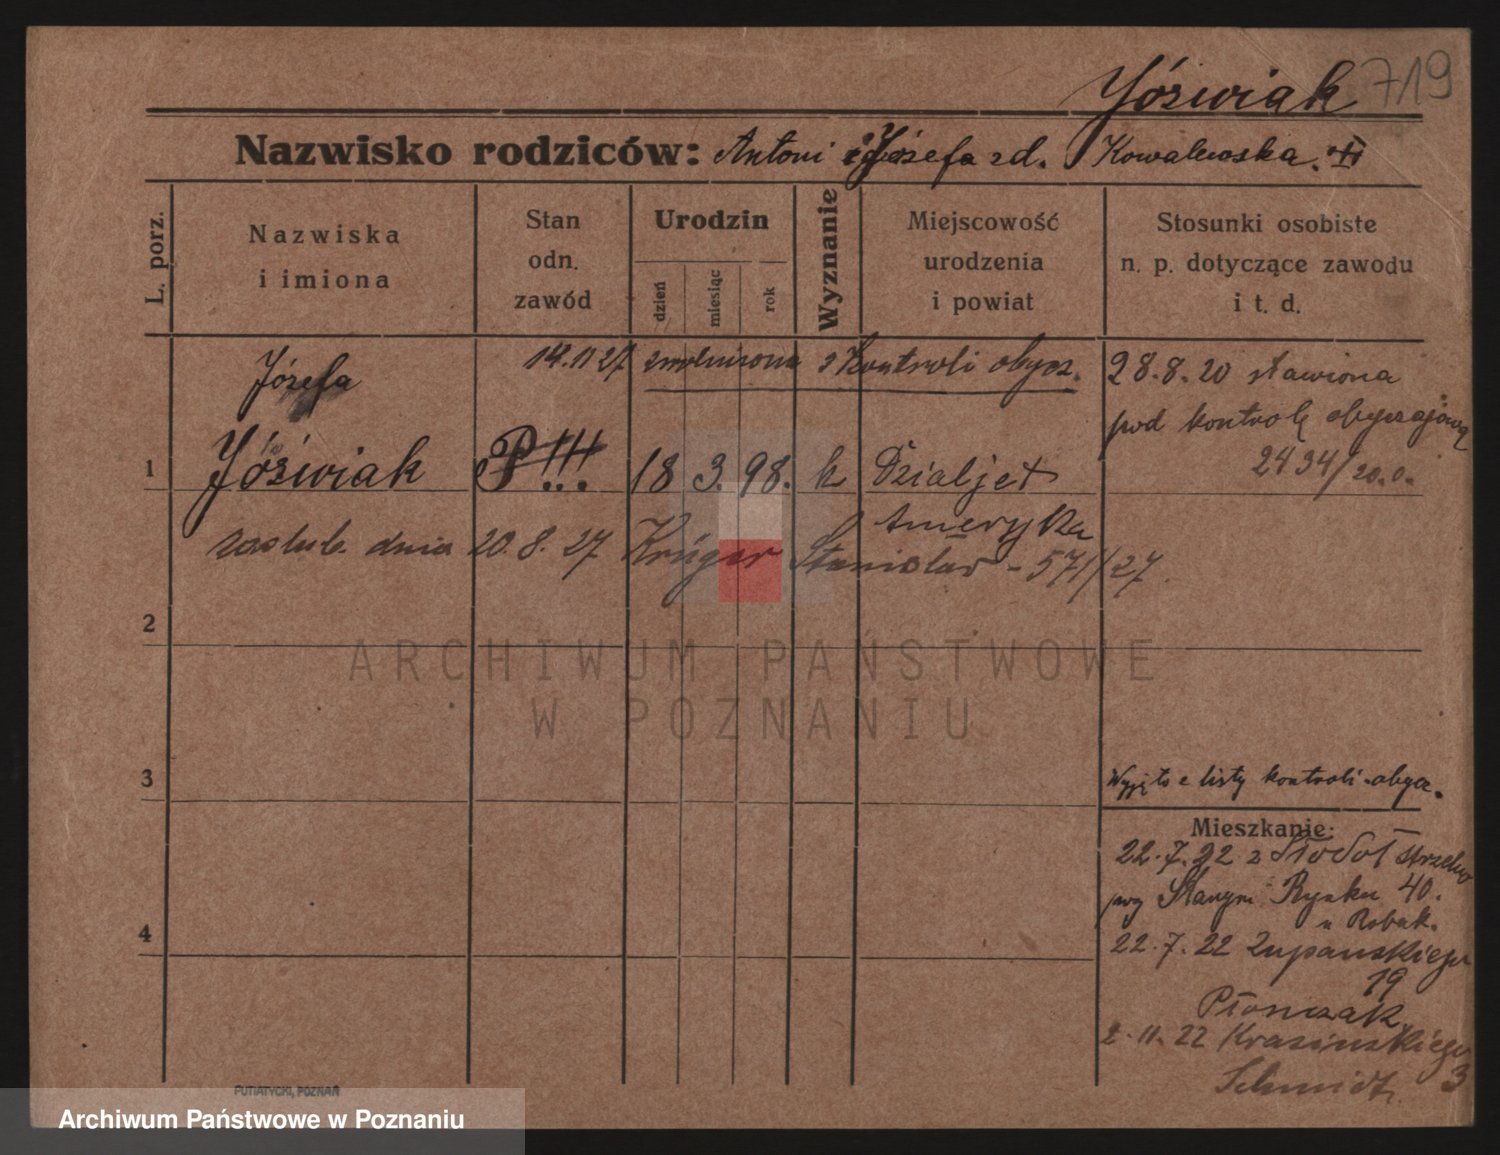 Jóźwiak 719
Nazwisko rodziców: Antoni i Józefa zd. Kowalewska.
L. porz.
Nazwiska
i imiona
Stan
odn.
zawód
Urodzin
dzień
miesiąc
rok
Wyznanie
Miejscowość
urodzenia
i powiat
Stosunki osobiste
n. p. dotyczące zawodu
i t. d.
14.11.27 zwolniona z Kontroli obycz.
Józefa
1 Jóźwiak P!!! 18 3. 98. k Dzialjet
Ameryka
28.8.20 stawiona
pod kontrolę obyczajową
2434/20.0.
zaślub. dnia 20.8.27 Krüger Stanisław - 571/27
2
3
Wyjęto z listy kontroli obycz.
Mieszkanie:
22.7.22 z Strzelno
przy Starym Rynku 40.
u Robak.
4
22.7.22 Żupańskiego
19
Płonczak
2.11.22 Krasińskiego
3
Schmidt
PUTIATYCKI, POZNAŃ
ARCHIWUM PAŃSTWOWE
W POZNANIU
Archiwum Państwowe w Poznaniu